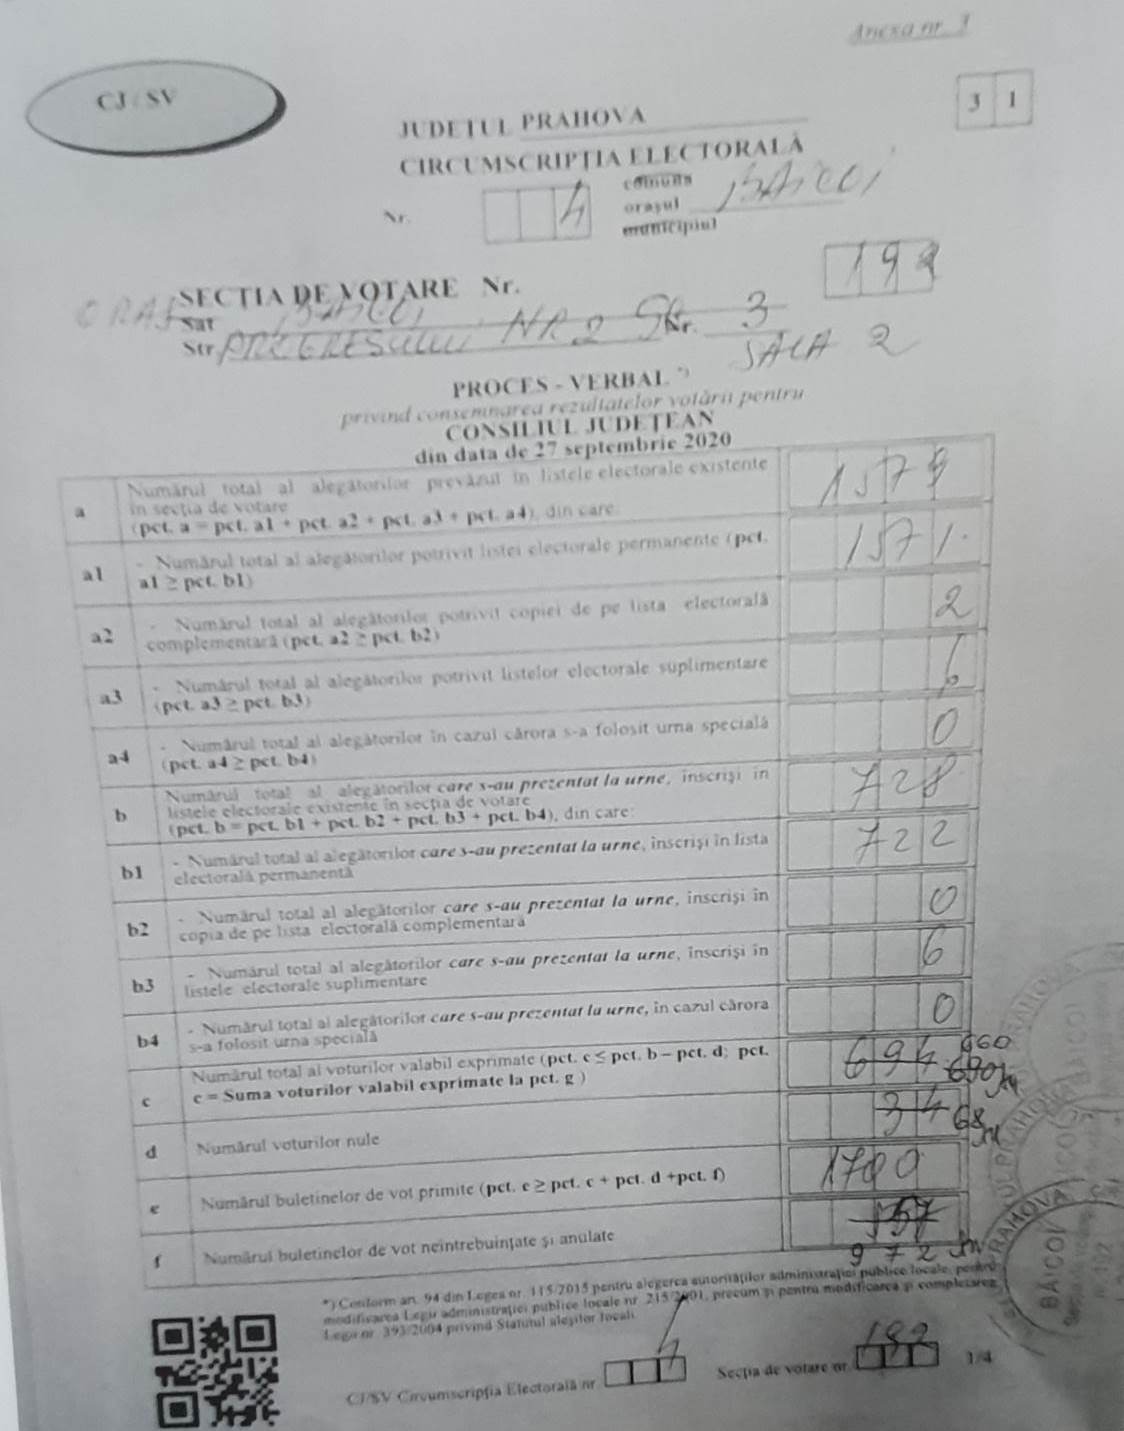 Anexa nr. 1
CJ / SV
3 1
JUDEȚUL PRAHOVA
CIRCUMSCRIPȚIA ELECTORALĂ
Nr. 4
comuna
orașul BAICOI
municipiul
SECȚIA DE VOTARE Nr. 192
ORAȘ
Sat BAICOI
Str. PROGRESULUI NR 2 Nr. 3
SALA 2
PROCES - VERBAL *)
privind consemnarea rezultatelor votării pentru
CONSILIUL JUDEȚEAN
din data de 27 septembrie 2020
a Numărul total al alegătorilor prevăzut în listele electorale existente
în secția de votare
(pct. a = pct. a1 + pct. a2 + pct. a3 + pct. a4), din care: 1579
a1 - Numărul total al alegătorilor potrivit listei electorale permanente (pct.
a1 ≥ pct. b1) 1571
a2 - Numărul total al alegătorilor potrivit copiei de pe lista electorală
complementară (pct. a2 ≥ pct. b2) 2
a3 - Numărul total al alegătorilor potrivit listelor electorale suplimentare
(pct. a3 ≥ pct. b3) 6
a4 - Numărul total al alegătorilor în cazul cărora s-a folosit urna specială
(pct. a4 ≥ pct. b4) 0
b Numărul total al alegătorilor care s-au prezentat la urne, înscriși în
listele electorale existente în secția de votare
(pct. b = pct. b1 + pct. b2 + pct. b3 + pct. b4), din care: 728
b1 - Numărul total al alegătorilor care s-au prezentat la urne, înscriși în lista
electorală permanentă 722
b2 - Numărul total al alegătorilor care s-au prezentat la urne, înscriși în
copia de pe lista electorală complementară 0
b3 - Numărul total al alegătorilor care s-au prezentat la urne, înscriși în
listele electorale suplimentare 6
b4 - Numărul total al alegătorilor care s-au prezentat la urne, în cazul cărora
s-a folosit urna specială 0
c Numărul total al voturilor valabil exprimate (pct. c ≤ pct. b – pct. d; pct.
c = Suma voturilor valabil exprimate la pct. g ) 694 660
690
d Numărul voturilor nule 34 68
e Numărul buletinelor de vot primite (pct. e ≥ pct. c + pct. d +pct. f) 1700
f Numărul buletinelor de vot neîntrebuințate și anulate
972
*) Conform art. 94 din Legea nr. 115/2015 pentru alegerea autorităților administrației publice locale, pentru
modificarea Legii administrației publice locale nr. 215/2001, precum și pentru modificarea și completarea
Legii nr. 393/2004 privind Statutul aleșilor locali
CJ/SV Circumscripția Electorală nr. 4 Secția de votare nr. 192 1/4
BĂICOI